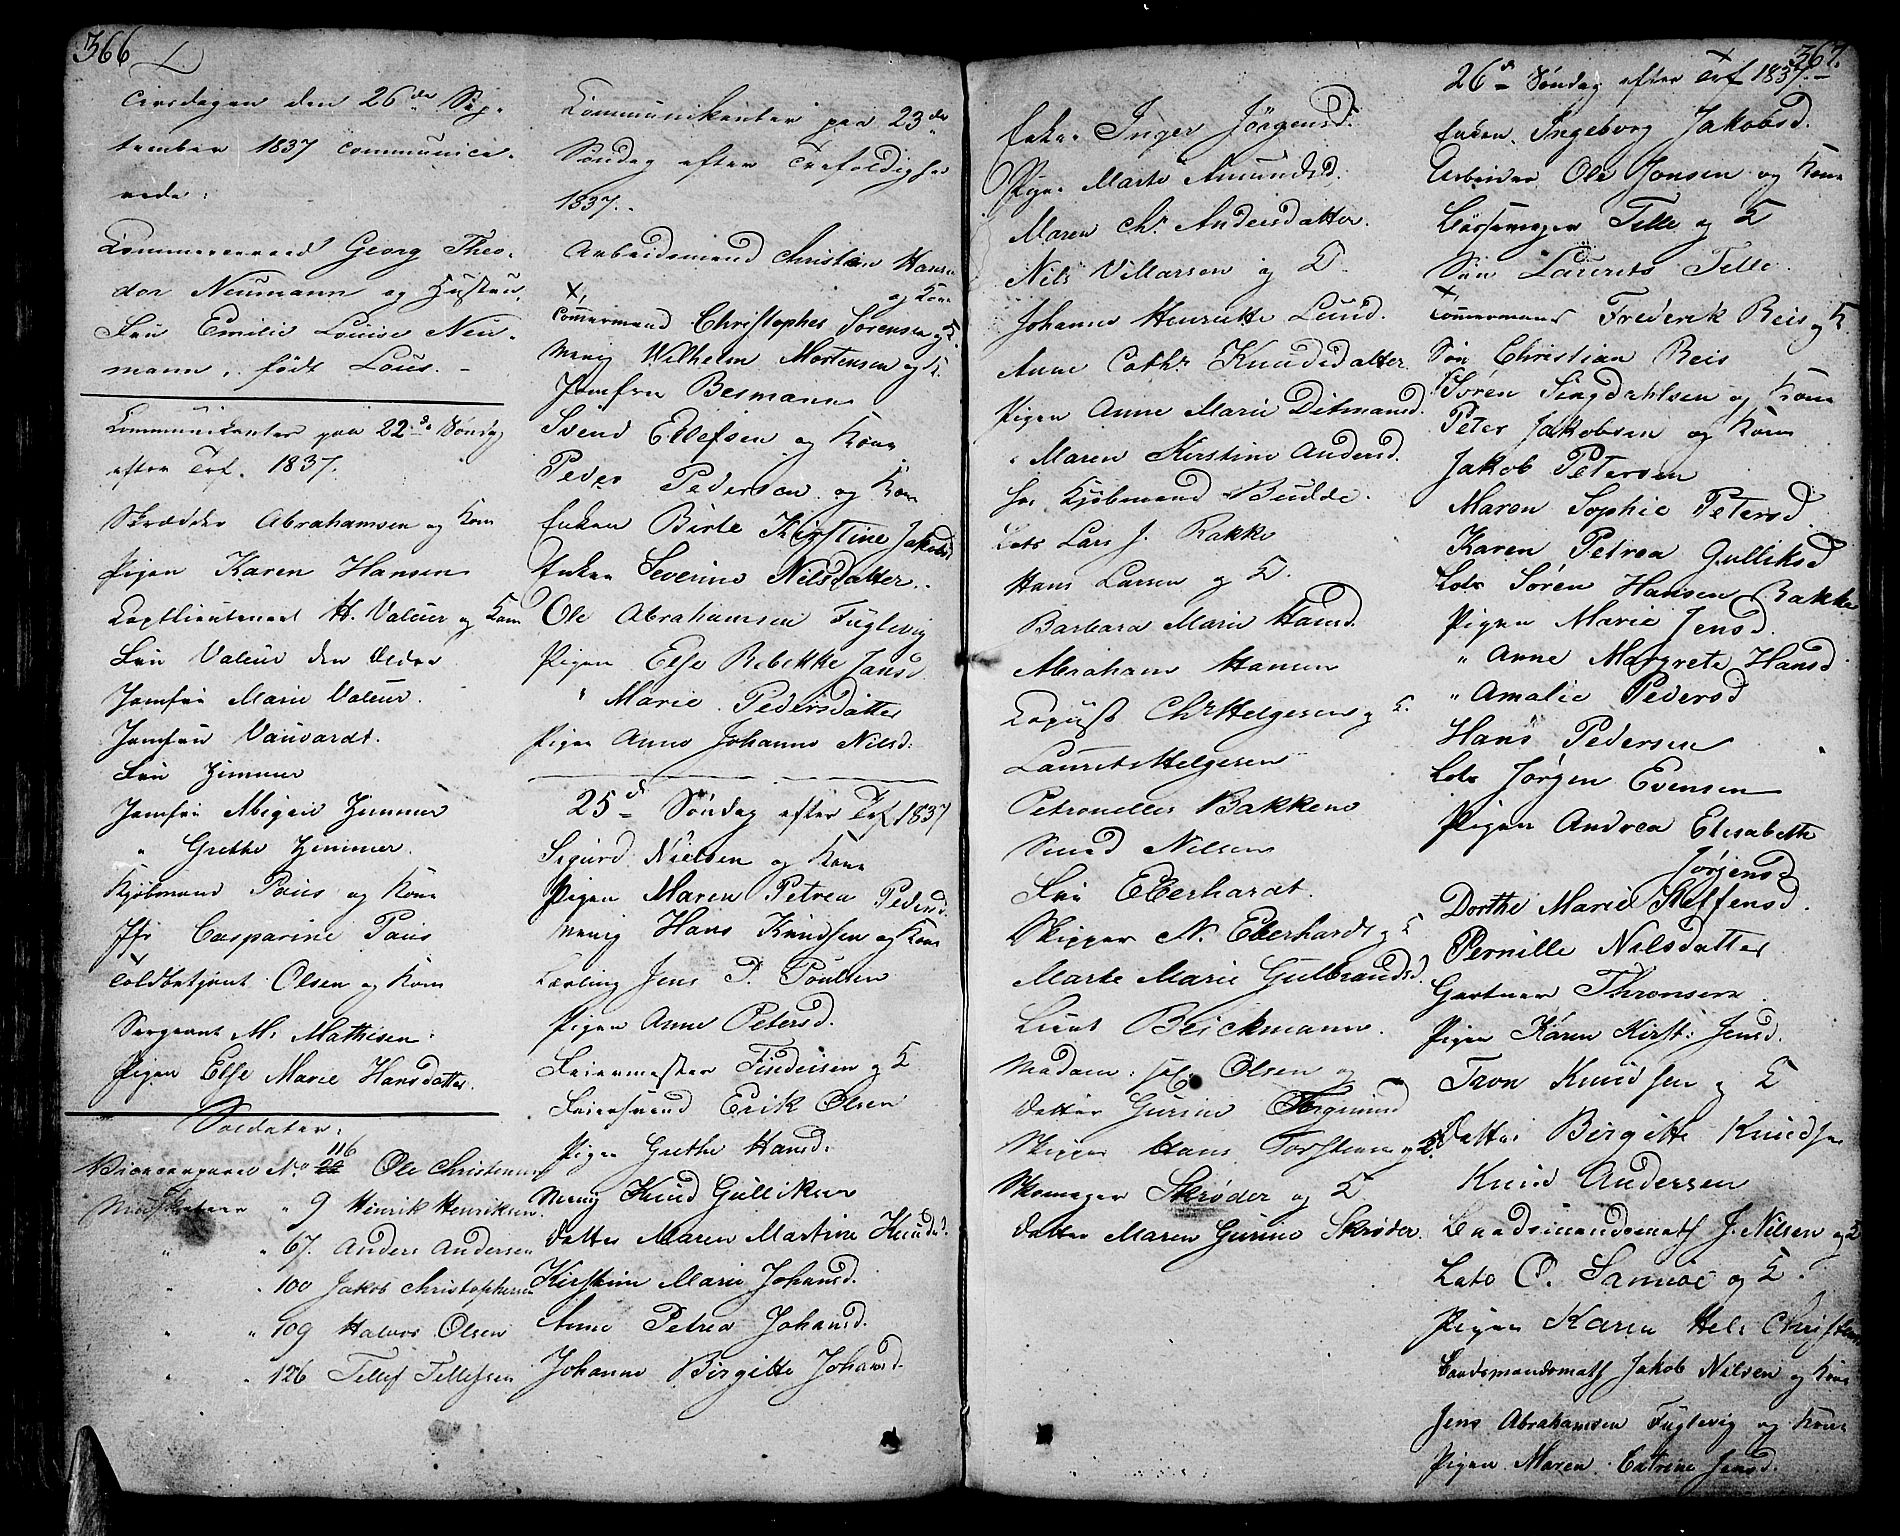 366
Tirsdagen den 26de Sep-
tember 1837 communice-
rede:
Commerceraad Georg Theo-
dor Neumann og Hustru,
Fru Emilie Louise Neu-
mann, födt Lous. -
Communikanter paa 22de Söndag
efter Trf. 1837.
Skrædder Abrahamsen og Kone
Pigen Karen Hansen
Captlieutenant H. Valeur og Kone
Fru Valeur den Ældre
Jomfru Marie Valeur.
Jomfru Vauvardt.
Fru Zimmer
Jomfru Abigael Zimmer
" Grethe Zimmer.
Kjöbmand Paus og Kone
Jfr Casparine Paus
Toldbetjent Olsen og Kone
Sergeant M. Mathisen.
Pigen Else Marie Hansdatter.
Soldater:
No 116 Ole Christensen
Musketeer " 9 Hinrik Henriksen.
" " 67. Anders Andersen
" " 100 Jakob Christophersen
" " 109 Halvor Olsen
" " 126 Tellef Tellefsen
Communikanter paa 23de
Söndag efter Trefoldighed
1837.
Arbeidsmand Christian Hansen
og Kone
Tömmermand Christopher Sörensen og K.
Menig Wilhelm Mortensen og K.
Jomfru Besmann
Svend Ellefsen og Kone
Peder Pedersen og Kone
Enken Birte Kirstine Jakobsd
Enken Severine Nilsdatter.
Ole Abrahamsen Fuglevig
Pigen Else Rebekke Jansd.
" Marie Pedersdatter
Pigen Anne Johanne Nilsd:
25de Söndag efter Trf 1837
Sigurd Nielsen og Kone
Pigen Maren Petrea Pedersd.
Menig Hans Knudsen og Kone
Lærling Jens P. Poulsen
Pigen Anne Petersd.
Feiermester Findeisen og K
Feiersvend Erik Olsen
Pigen Grethe Hansd.
Menig Knud Gulliksen
Datter Maren Martine Knudsd.
Kirstine Marie Johansd.
Anne Petrea Johansd.
Johanne Birgitte Johansd.
367.
Enken Inger Jörgensd.
Pigen Marte Amundsd.
Maren Chr. Andersdatter.
Nils Villarsen og K.
Johanne Henriette Lund.
Anne Cathr. Knudsdatter
Pigen Anne Marie Ditmansd.
" Maren Kirstine Andersd.
Hr Kjöbmand Budde.
Lods Lars J. Bakke
Hans Larsen og K.
Barbara Marie Hansd.
Abraham Hansen
August Chr Helgesen og K.
Laurits Helgesen
Petronelle Bakken
Smed Nilsen
Fru Eberhardt.
Skipper N. Eberhardt og K
Marte Marie Gulbrandsd.
Lieut Brickmann.
Madam Olsen og
Datter Gurine
Skipper Hans Torstensen og K.
Skomager Skröder og K
Datter Maren Gurine Skröder.
26de Söndag efter Trf 1837. -
Enken Ingeborg Jakobsd.
Arbeider Ole Jonsen og Kone
Bössemager Telle og K
Sön Laurits Telle.
Tömmermand Frederik Reis og K.
Sön Christian Reis
Sören Singdahlsen og Kone
Peter Jakobsen og Kone
Jakob Petersen
Maren Sophie Petersd.
Karen Petrea Gulliksd
Lods Sören Hansen Bakke
Pigen Marie Jensd.
" Anne Margrete Hansd
" Amalie Pedersd
Hans Pedersen
Lods Jörgen Evensen
Pigen Andrea Elisabeth
Jörgensd
Dorthe Marie Steffensd.
Pernille Nilsdatter
Gartner Thronsen.
Pigen Karen Kirst: Jensd.
Tavn Knudsen og K
Datter Birgitte Knudsen
Knud Andersen
Baadsmandsmath J. Nilsen og K
Lods O. Samuel og K.
Pigen Karen Hel. Christens
Baadsmandsmath Jakob Nilsen og Kone
Jens Abrahamsen Fuglevig og Kone
Pigen Maren Catrine Jensd.